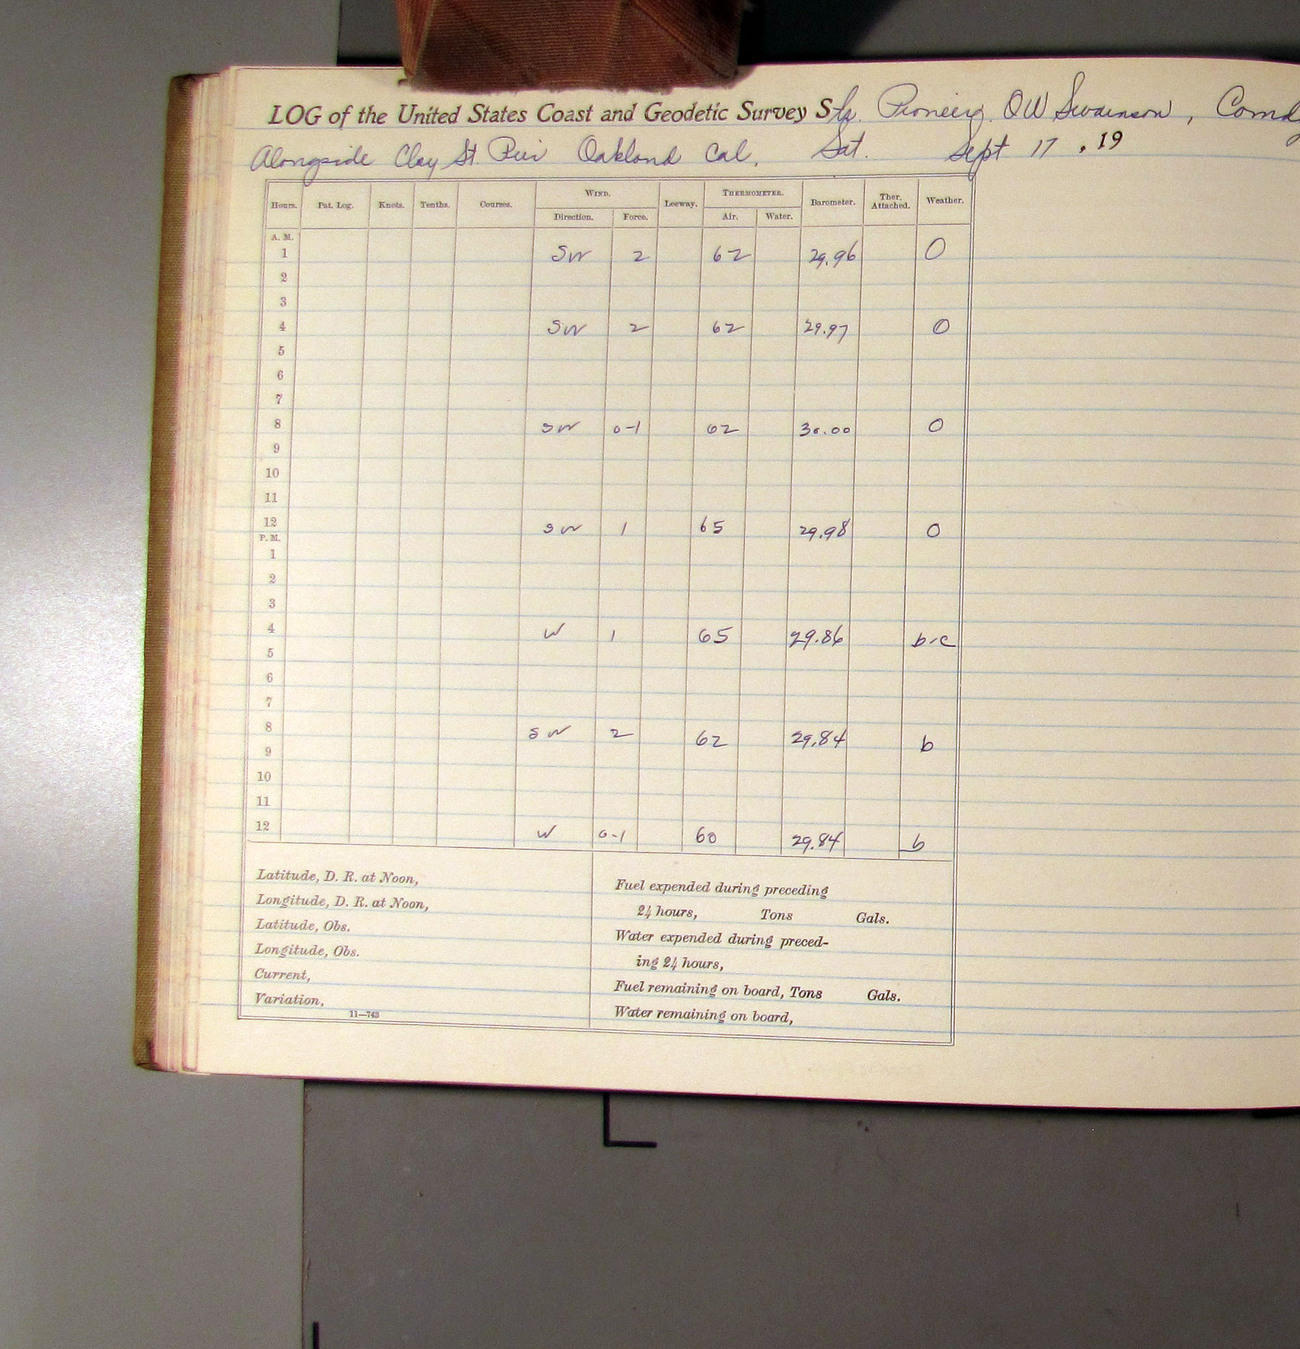 LOG of the United States Coast and Geodetic Survey Str. Pioneer, OW Swainson, Comdg
Alongside Clay St. Pier Oakland Cal. Sat. Sept 17 , 19
Hours. Pat. Log. Knots. Tenths. Courses. WIND. Leeway. THERMOMETER. Barometer. Ther. Attached. Weather.
Direction. Force. Air. Water.
A. M.
1 SW 2 62 29.96 O
2
3
4 SW 2 62 29.97 O
5
6
7
8 SW 0-1 62 30.00 O
9
10
11
12 SW 1 65 29.98 O
P. M.
1
2
3
4 W 1 65 29.86 b-c
5
6
7
8 SW 2 62 29.84 b
9
10
11
12 W 0-1 60 29.84 b
Latitude, D. R. at Noon,
Longitude, D. R. at Noon,
Latitude, Obs.
Longitude, Obs.
Current,
Variation,
11—743
Fuel expended during preceding
24 hours, Tons Gals.
Water expended during preced-
ing 24 hours,
Fuel remaining on board, Tons Gals.
Water remaining on board,